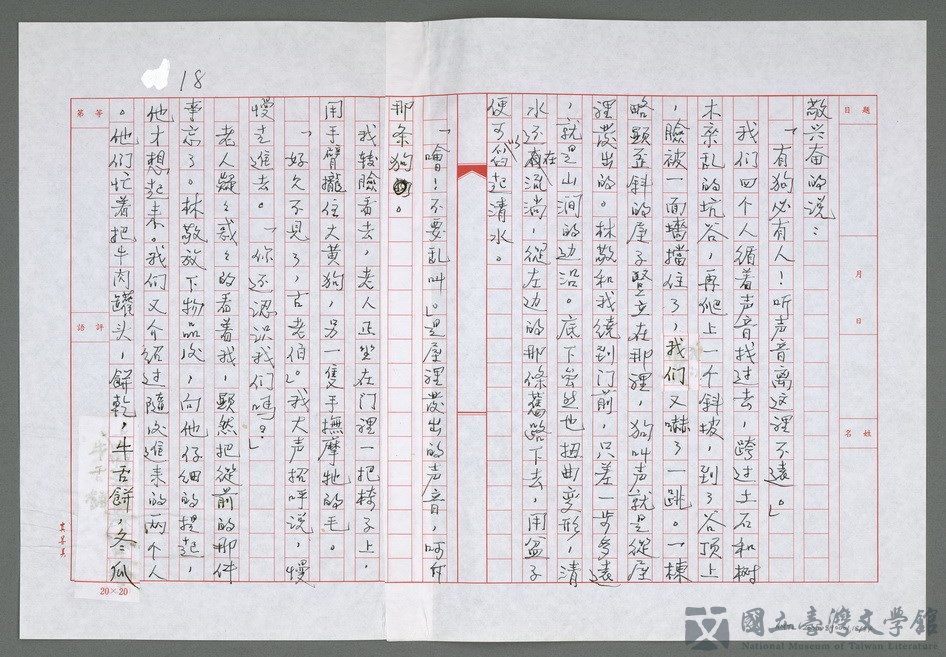 18
題目
月 日
姓名
敬兴奋的说：
「有狗必有人！听声音离这裡不遠。」
我们四个人循着声音找过去，跨过土石和樹
木杂乱的坑谷，再爬上一个斜坡，到了谷顶上
，臉被一面墻擋住了，我们又嚇了一跳。一棟
略顯歪斜的屋子豎立在那裡，狗叫声就是從屋
裡發出的。林敬和我绕到门前，只差一步多遠
，就是山涧的边沿。底下虽然也扭曲变形，清
水还在流淌，從左边的那條舊路下去，用盆子
便可以舀起清水。
「噲！不要乱叫」是屋裡發出的声音，呵斥
那条狗。
我转臉看去，老人正坐在门裡一把椅子上，
用手臂攏住大黄狗，另一隻手撫摩牠的毛。
「好久不見了，古老伯。」我大声招呼说，慢
慢走進去。「你还認识我们嗎？」
老人疑々惑々的看着我，顯然把從前的那件
事忘了。林敬放下物品后，向他仔细的提起，
他才想起来。我们又介绍过隨后進来的兩个人
。他们忙着把牛肉罐头，餅乾，牛舌餅，冬瓜
等第
評語
20×20
國立臺灣文學館
National Museum of Taiwan Literature